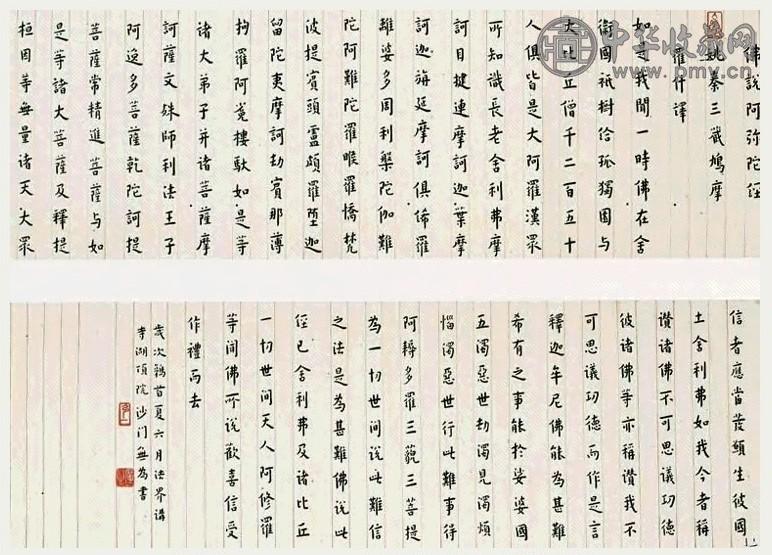 佛說阿弥陀经
姚秦三藏鳩摩
羅什譯
如是我聞一時佛在舍
衛國祇樹给孤獨園与
大比丘僧千二百五十
人俱皆是大阿羅漢眾
所知識長老舍利弗摩
訶目揵連摩訶迦葉摩
訶迦旃延摩訶俱絺羅
離婆多周利槃陀伽難
陀阿難陀羅睺羅憍梵
彼提賓頭盧頗羅堕迦
留陀夷摩訶劫賓那薄
拘羅阿㝹樓馱如是等
诸大弟子并诸菩薩摩
訶薩文殊師利法王子
阿逸多菩薩乾陀訶提
菩薩常精進菩薩与如
是等諸大菩薩及釋提
桓因等無量诸天大眾
信者應當发願生彼國
土舍利弗如我今者稱
讚诸佛不可思議功德
彼诸佛等亦稱讚我不
可思議功德而作是言
釋迦牟尼佛能為甚難
希有之事能於娑婆國
五濁惡世劫濁見濁煩
惱濁惡世行此難事得
阿耨多羅三藐三菩提
為一切世间說此難信
之法是為甚難佛說此
经已舍利弗及诸比丘
一切世间天人阿修羅
等闻佛所說歡喜信受
作禮而去
歲次鶉首夏六月法界講
寺湖頂院沙门無為書
中华收藏网
www.pmy.cn